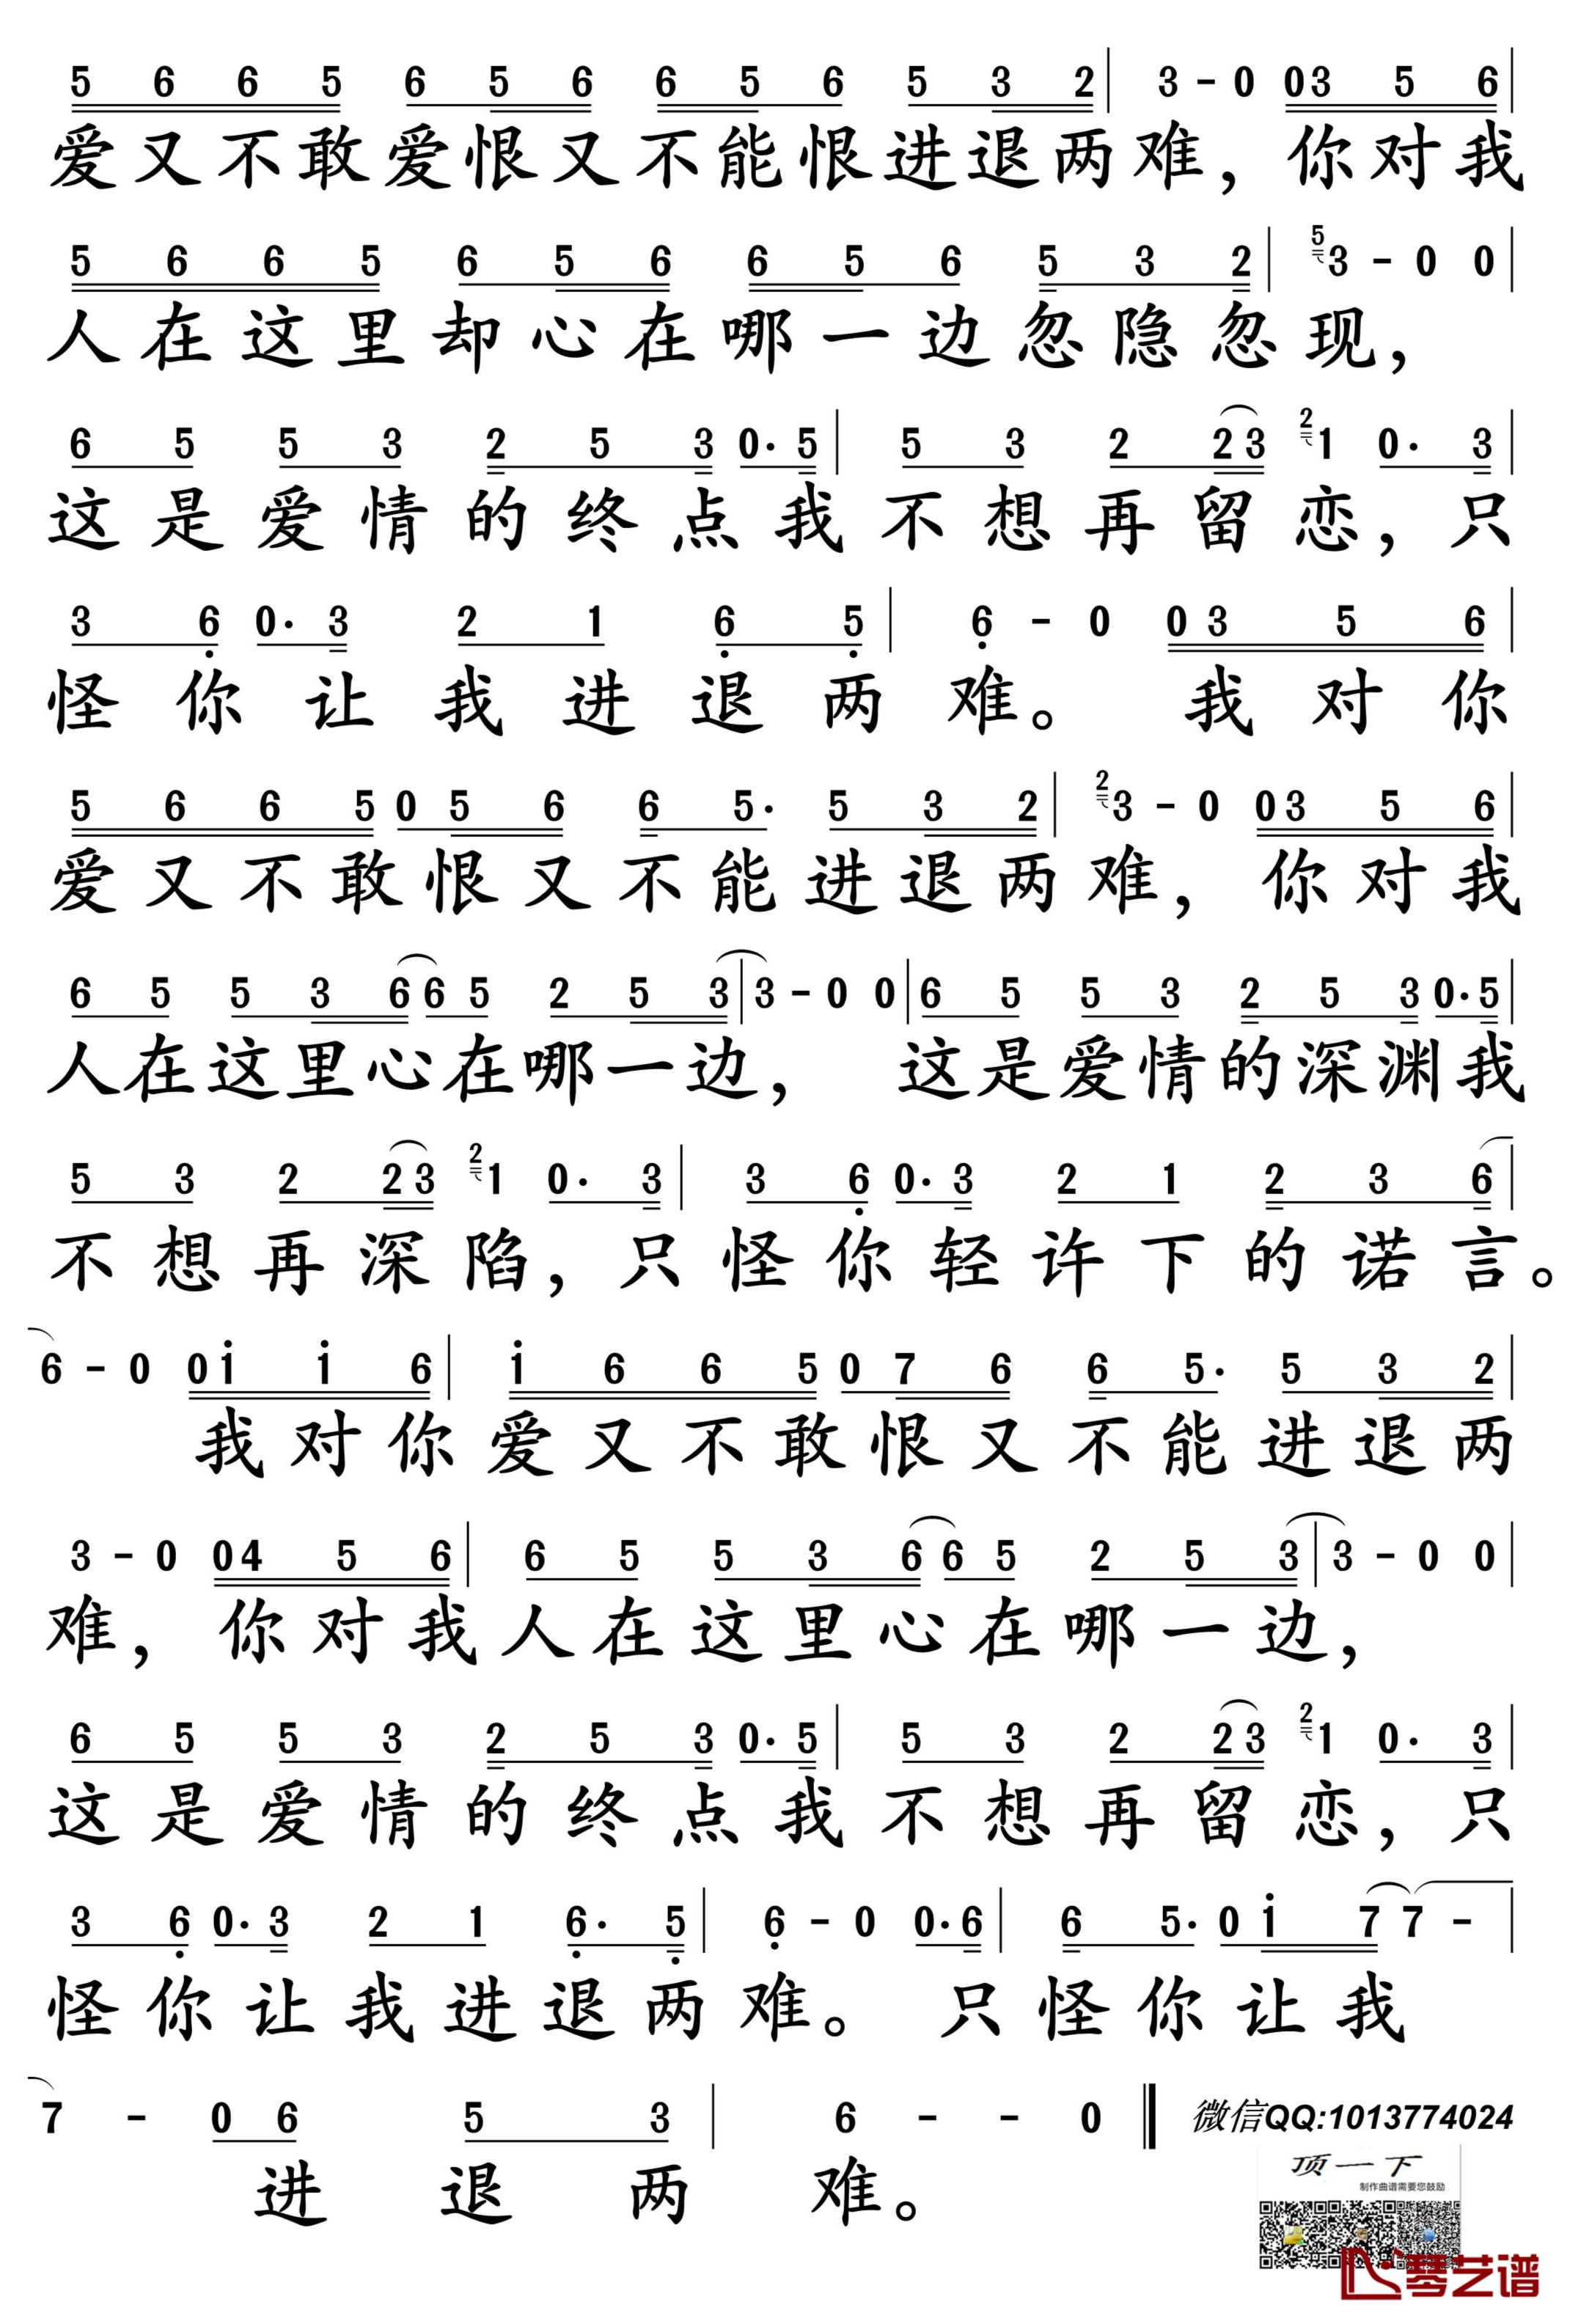 5 6 6 5 6 5 6 6 5 6 5 3 2 | 3 - 0 0 3 5 6 |
爱又不敢爱恨又不能恨进退两难，你对我
5 6 6 5 6 5 6 6 5 6 5 3 2 | 5 3 - 0 0 |
人在这里却心在哪一边忽隐忽现，
6 5 5 3 2 5 3 0· 5 | 5 3 2 2 3 2 1 0· 3 |
这是爱情的终点我不想再留恋，只
3 6 0· 3 2 1 6 5 | 6 - 0 0 3 5 6 |
怪你让我进退两难。我对你
5 6 6 5 0 5 6 6 5· 5 3 2 | 2 3 - 0 0 3 5 6 |
爱又不敢恨又不能进退两难，你对我
6 5 5 3 6 6 5 2 5 3 | 3 - 0 0 | 6 5 5 3 2 5 3 0· 5 |
人在这里心在哪一边，这是爱情的深渊我
5 3 2 2 3 2 1 0· 3 | 3 6 0· 3 2 1 2 3 6 |
不想再深陷，只怪你轻许下的诺言。
6 - 0 0 i i 6 | i 6 6 5 0 7 6 6 5· 5 3 2 |
我对你爱又不敢恨又不能进退两
3 - 0 0 4 5 6 | 6 5 5 3 6 6 5 2 5 3 | 3 - 0 0 |
难，你对我人在这里心在哪一边，
6 5 5 3 2 5 3 0· 5 | 5 3 2 2 3 2 1 0· 3 |
这是爱情的终点我不想再留恋，只
3 6 0· 3 2 1 6· 5 | 6 - 0 0· 6 | 6 5· 0 i 7 7 - |
怪你让我进退两难。只怪你让我
7 - 0 6 5 3 | 6 - - 0 ‖
进退两难。
微信QQ:1013774024
顶一下
制作曲谱需要您鼓励
琴艺谱